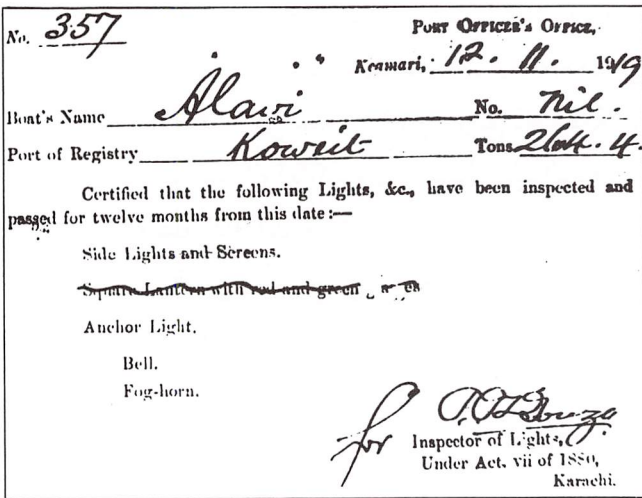 No. 357
PORT OFFICER'S OFFICE,
Keamari, 12. 11. 1919
Boat's Name Alawi No. Nil.
Port of Registry Koweit Tons 264. 4.
Certified that the following Lights, &c., have been inspected and
passed for twelve months from this date:—
Side Lights and Screens.
Square Lantern with red and green
Anchor Light.
Bell.
Fog-horn.
for
Inspector of Lights,
Under Act. vii of 1880,
Karachi.